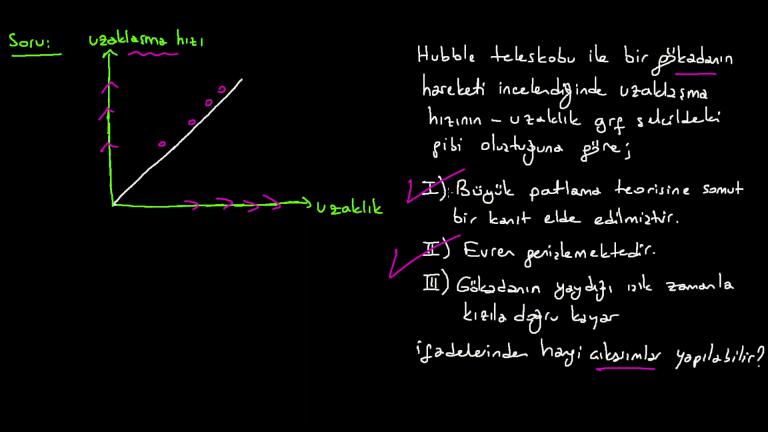 Soru:
uzaklaşma hızı
uzaklık
Hubble teleskobu ile bir gökadanın
hareketi incelendiğinde uzaklaşma
hızının - uzaklık grf şekildeki
gibi oluştuğuna göre;
I) Büyük patlama teorisine somut
bir kanıt elde edilmiştir.
II) Evren genişlemektedir.
III) Gökadanın yaydığı ışık zamanla
kızıla doğru kayar
ifadelerinden hangi çıkarımlar yapılabilir?